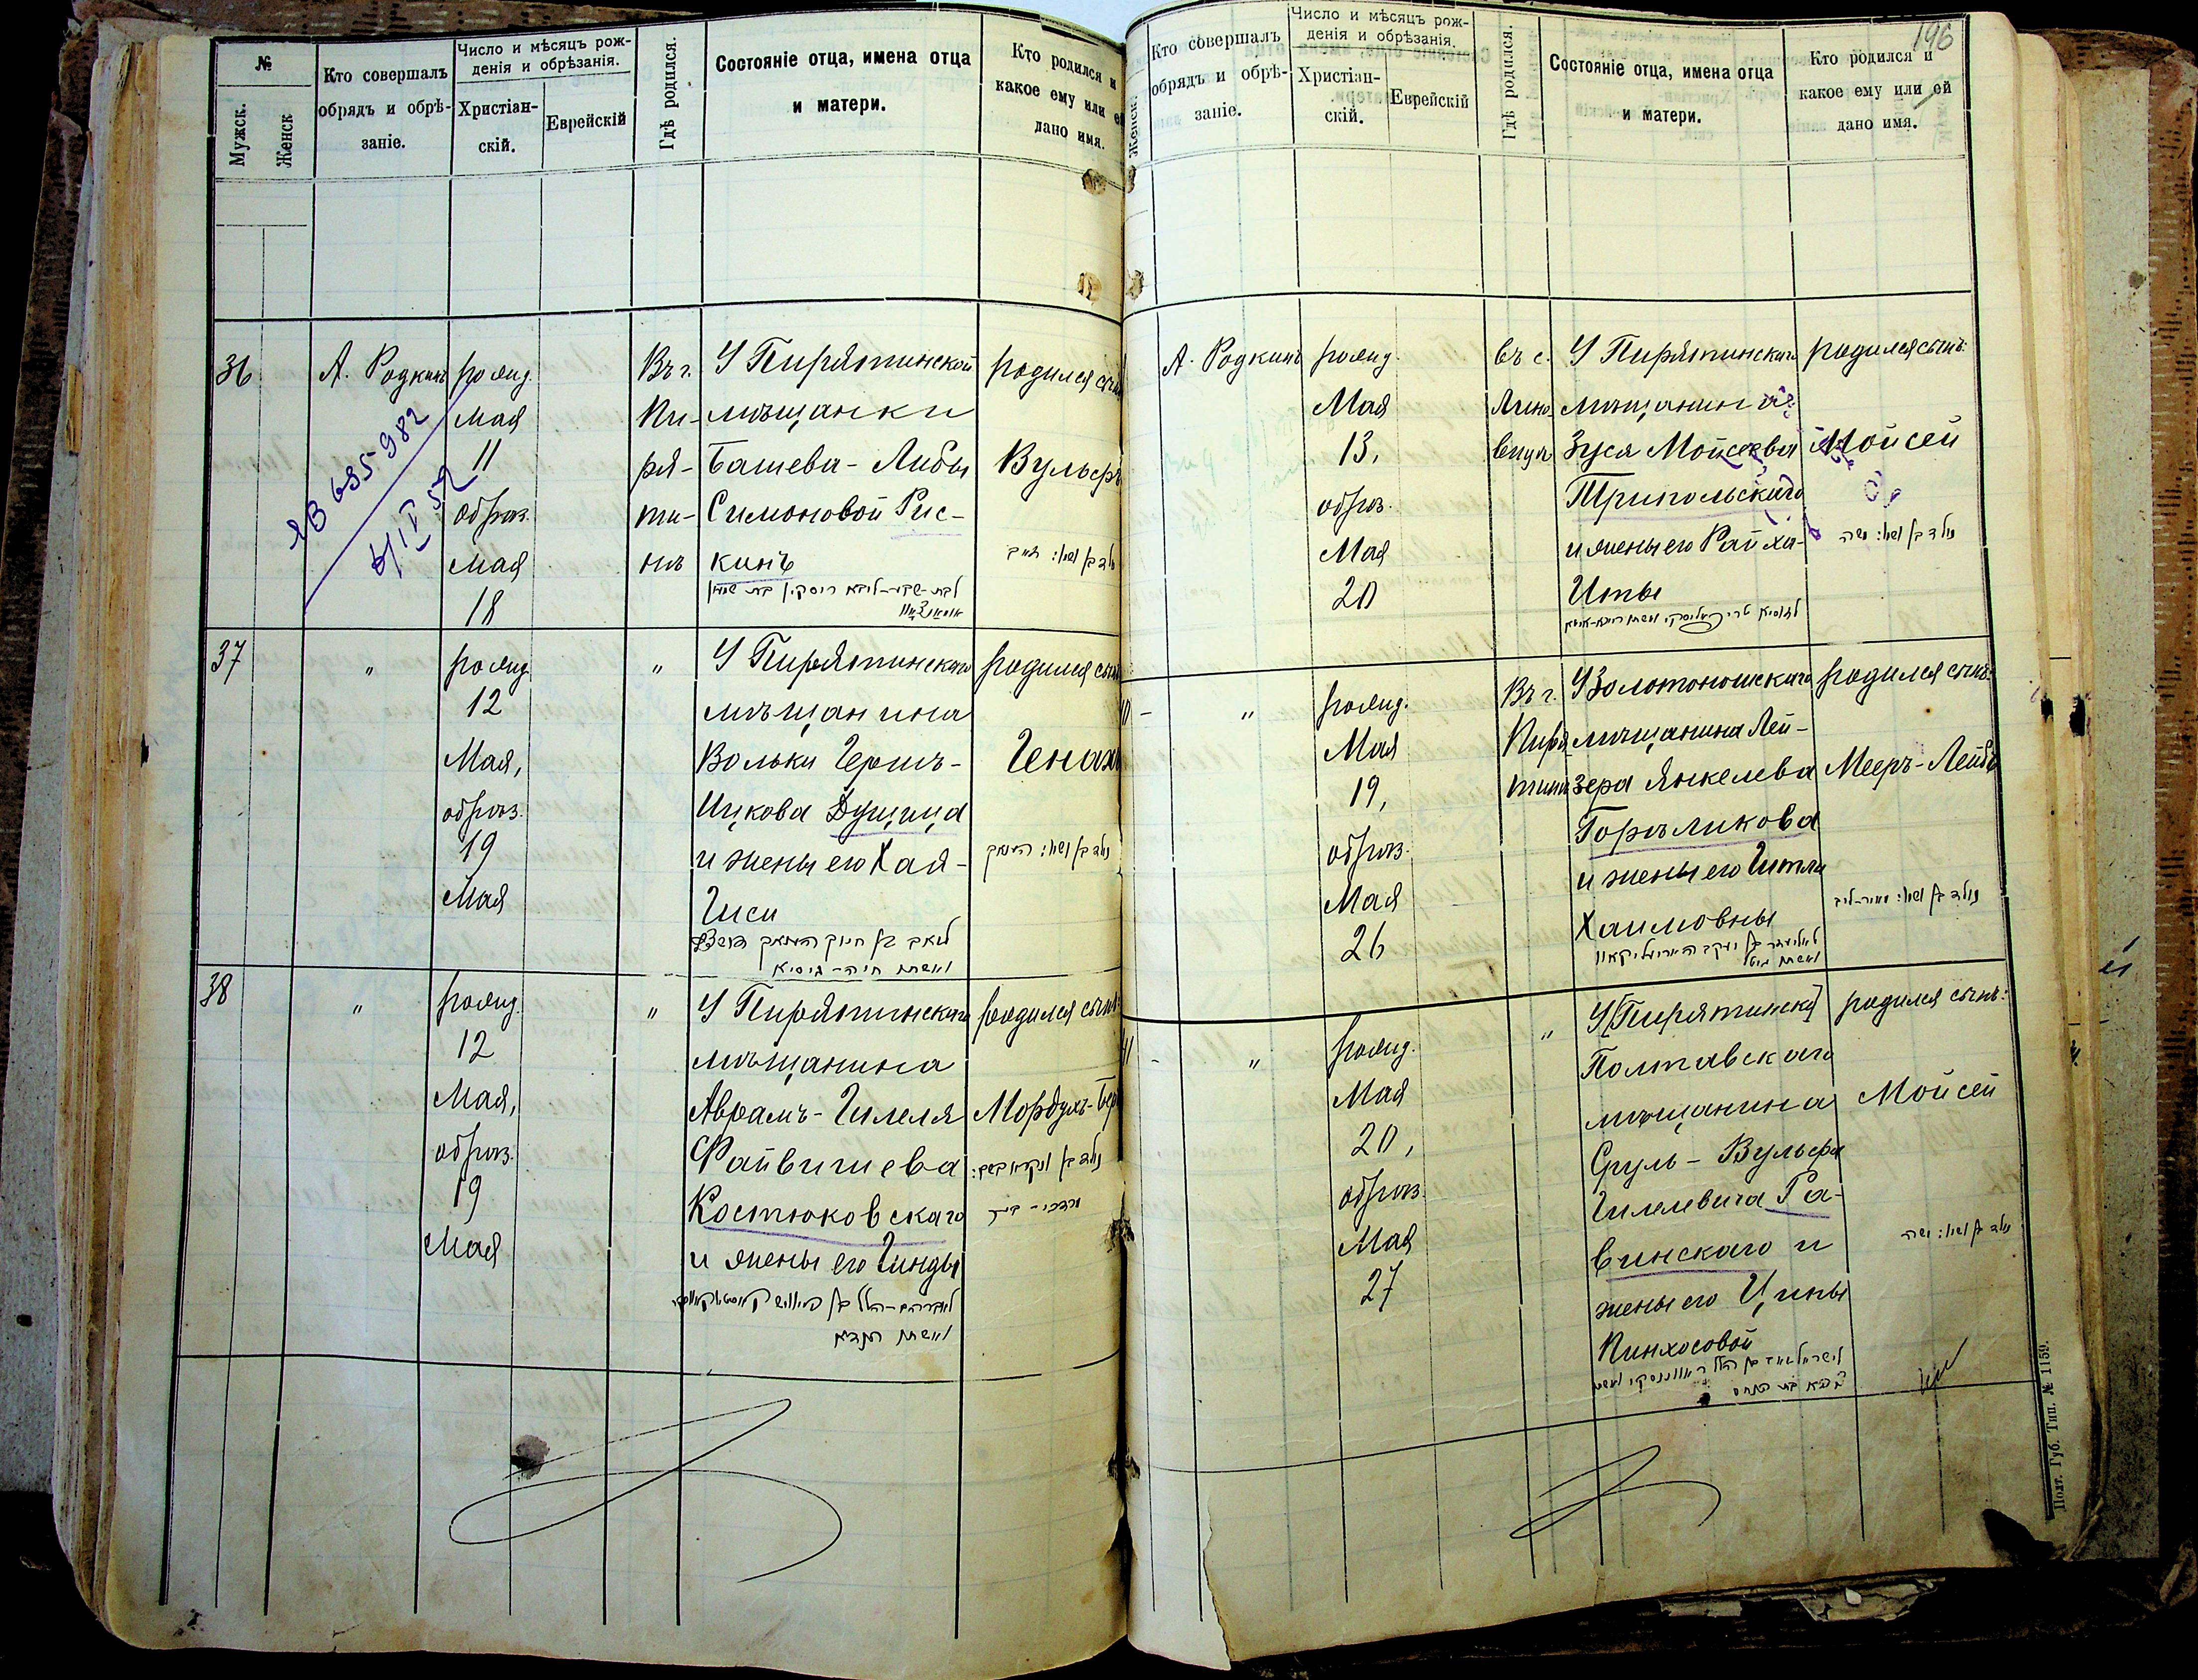 №
Мужск.
Женск
Кто совершалъ
обрядъ и обрѣ-
заніе.
Число и мѣсяцъ рож-
денія и обрѣзанія.
Христіан-
скій.
Еврейскій
Гдѣ родился.
Состояніе отца, имена отца
и матери.
Кто родился и
какое ему или ей
дано имя.
36
А. Родкинъ
рожд.
мая
11
обрѣз.
мая
18
Въ г.
Пи-
ря-
ти-
нѣ
У Пирятинской
мѣщанки
Башева-Либы
Симоновой Рис-
кинъ
родился сынъ
Вульфъ
37
"
рожд.
12
Мая,
обрѣз.
19
Мая
"
У Пирятинскаго
мѣщанина
Вольки Гершъ-
Ицкова Дущица
и жены его Хая-
Гиси
родился сынъ
Генахъ
38
"
рожд.
12
Мая,
обрѣз.
19
Мая
"
У Пирятинскаго
мѣщанина
Аврамъ-Гилеля
Файвишева
Костюковскаго
и жены его Гинды
родился сынъ:
Мордухъ-Бер
196
Женск.
Кто совершалъ
обрядъ и обрѣ-
заніе.
Число и мѣсяцъ рож-
денія и обрѣзанія.
Христіан-
скій.
Еврейскій
Гдѣ родился.
Состояніе отца, имена отца
и матери.
Кто родился и
какое ему или ей
дано имя.
А. Родкинъ
рожд.
Мая
13,
обрѣз.
Мая
20
въ с.
У Пирятинскаго
мѣщанина
Зуся Мойсеева
Трипольскаго
и жены его Райха-
Иты
родился сынъ:
Мойсей
נולד בן ושמו: משה
"
рожд.
Мая
19,
обрѣз.
Мая
26
Въ г.
Пиря
тинѣ
У Золотоношскаго
мѣщанина Лей-
зера Янкелева
Горѣликова
и жены его Гитли
Хаимовны
родился сынъ:
Мееръ-Лейбъ
נולד בן ושמו: מאיר-ליב
"
рожд.
Мая
20,
обрѣз.
Мая
27
"
У [Пирятинска]
Полтавскаго
мѣщанина
Сруль-Вульфа
Гилелевича Ра-
винскаго и
жены его Ципы
Пинхосовой
родился сынъ:
Мойсей
נולד בן ושמו: משה
Полт. Губ. Тип. № 1159.